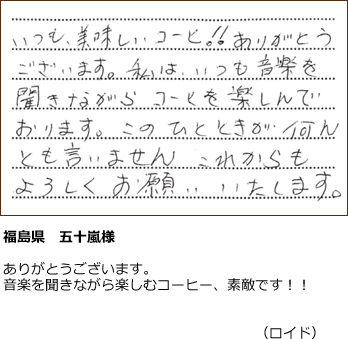 いつも、美味しいコーヒ!!ありがとう
ございます。私は、いつも音楽を
聞きながら コーヒを楽しんで
おります。このひとときが何ん
とも言いません これからも
よろしくお願いいたします。
福島県 五十嵐様
ありがとうございます。
音楽を聞きながら楽しむコーヒー、素敵です！！
（ロイド）